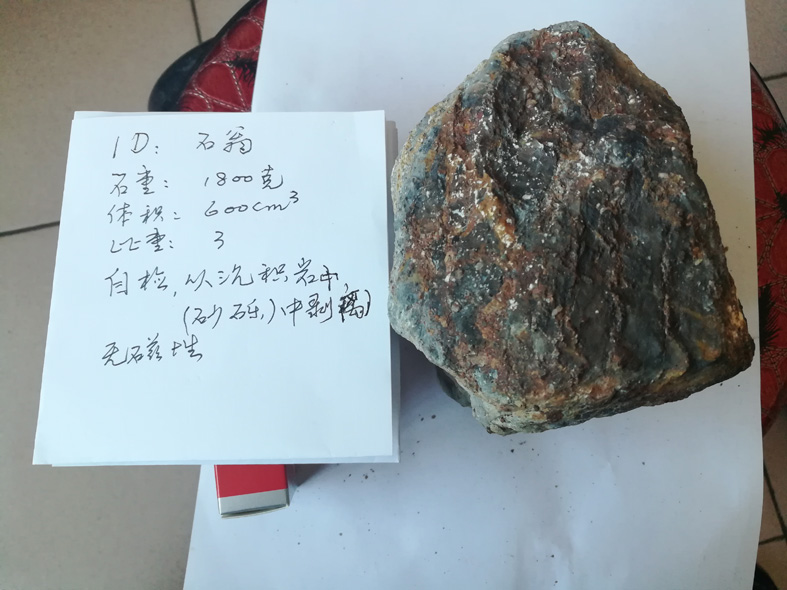 ID: 石翁
石重: 1800克
体积: 600cm³
比重: 3
自检, 从沉积岩中,
(砂砾)中剥离
无磁性